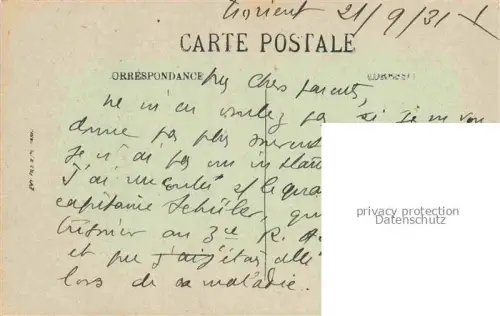 Lorient 21/9/31
CARTE POSTALE
CORRESPONDANCE
Mes chers parents,
ne m'en voulez pas si je ne vous
donne pas plus souvent
Je n'ai pas un instant
J'ai rencontré s/ le quai
capitaine Schüler, qui
trésorier au 3ème R. A.
et que j'ai j'étais allé
lors de sa maladie.
privacy protection
Datenschutz